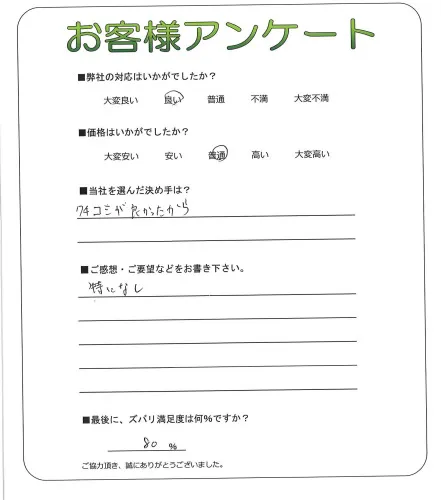 お客様アンケート
■弊社の対応はいかがでしたか?
大変良い 良い 普通 不満 大変不満
■価格はいかがでしたか?
大変安い 安い 普通 高い 大変高い
■当社を選んだ決め手は?
クチコミが良かったから
■ご感想・ご要望などをお書き下さい。
特になし
■最後に、ズバリ満足度は何%ですか?
80 %
ご協力頂き、誠にありがとうございました。